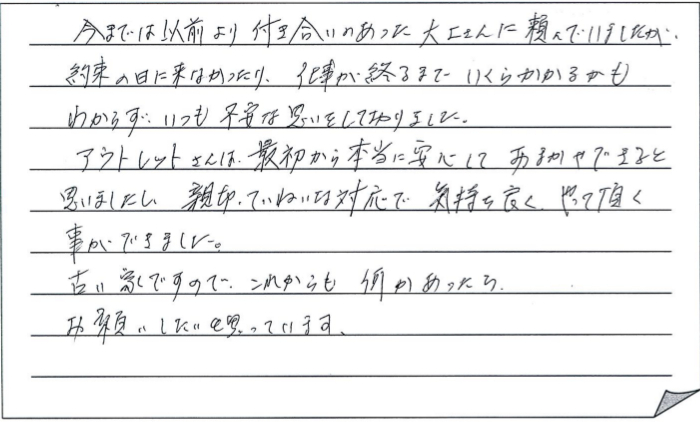 今までは以前より付き合いのあった大工さんに頼んでいましたが、
約束の日に来なかったり、仕事が終るまでいくらかかるかも
わからず、いつも不安な思いをして切りました。
アウトレットさんは、最初から本当に安心しておまかせできると
思いましたし 親切、ていねいな対応で 気持ち良く、やって頂く
事ができました。
古い家ですので、これからも何かあったら、
お願いしたいと思っています。